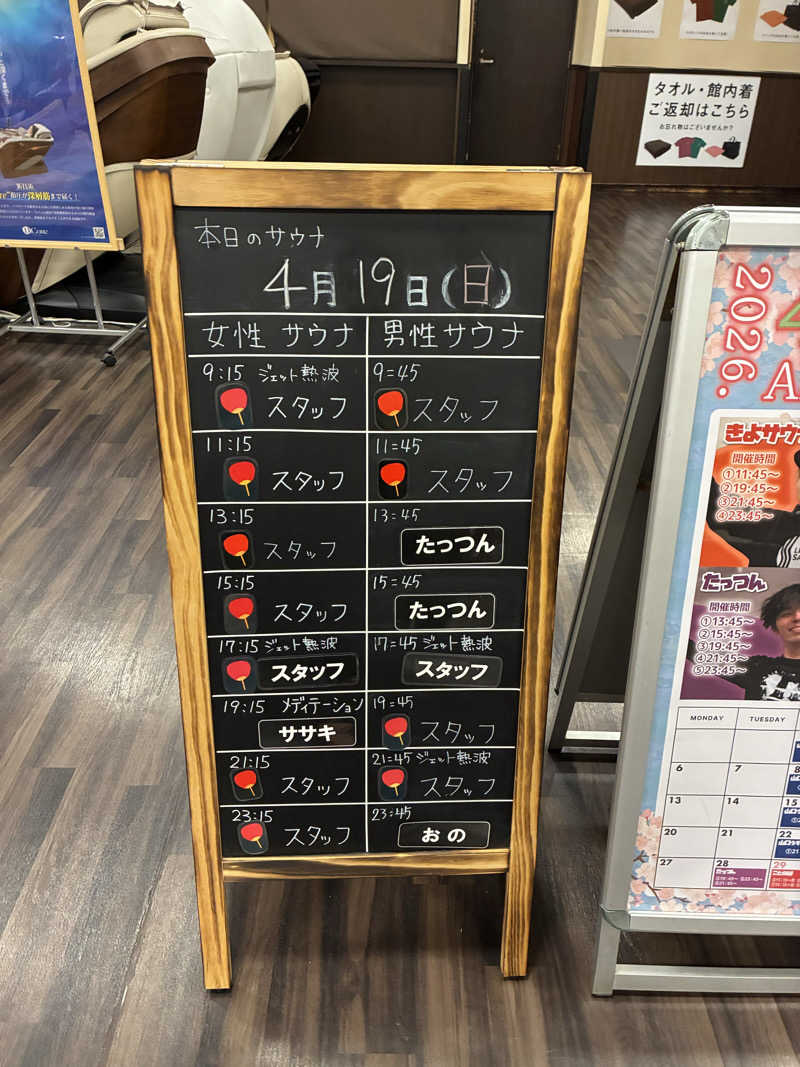 本日のサウナ
4月19日(日)
女性 サウナ
男性サウナ
9:15 ジェット熱波
スタッフ
9=45
スタッフ
11:15
スタッフ
11=45
スタッフ
13:15
スタッフ
13=45
たっつん
15:15
スタッフ
15=45
たっつん
17:15 ジェット熱波
スタッフ
17=45 ジェット熱波
スタッフ
19:15 メディテーション
ササキ
19=45
スタッフ
21:15
スタッフ
21=45 ジェット熱波
スタッフ
23:15
スタッフ
23:45
おの
タオル・館内着
ご返却はこちら
お忘れ物はございませんか?
2026.
きよサウナ
開催時間
①11:45~
②19:45~
③21:45~
④23:45~
たっつん
開催時間
①13:45~
②15:45~
③19:45~
④21:45~
⑤23:45~
MONDAY TUESDAY
6 7
13 14 15
20 21 22
27 28 29
たっつん